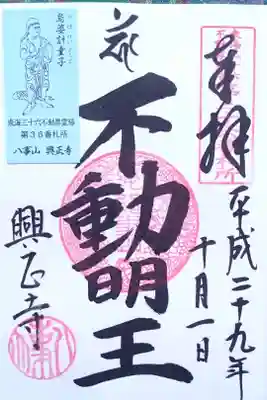 奉拝
平成二十九年
十月一日
不動明王
興正寺
烏婆計童子
東海三十六不動尊霊場
第36番札所
八事山 興正寺